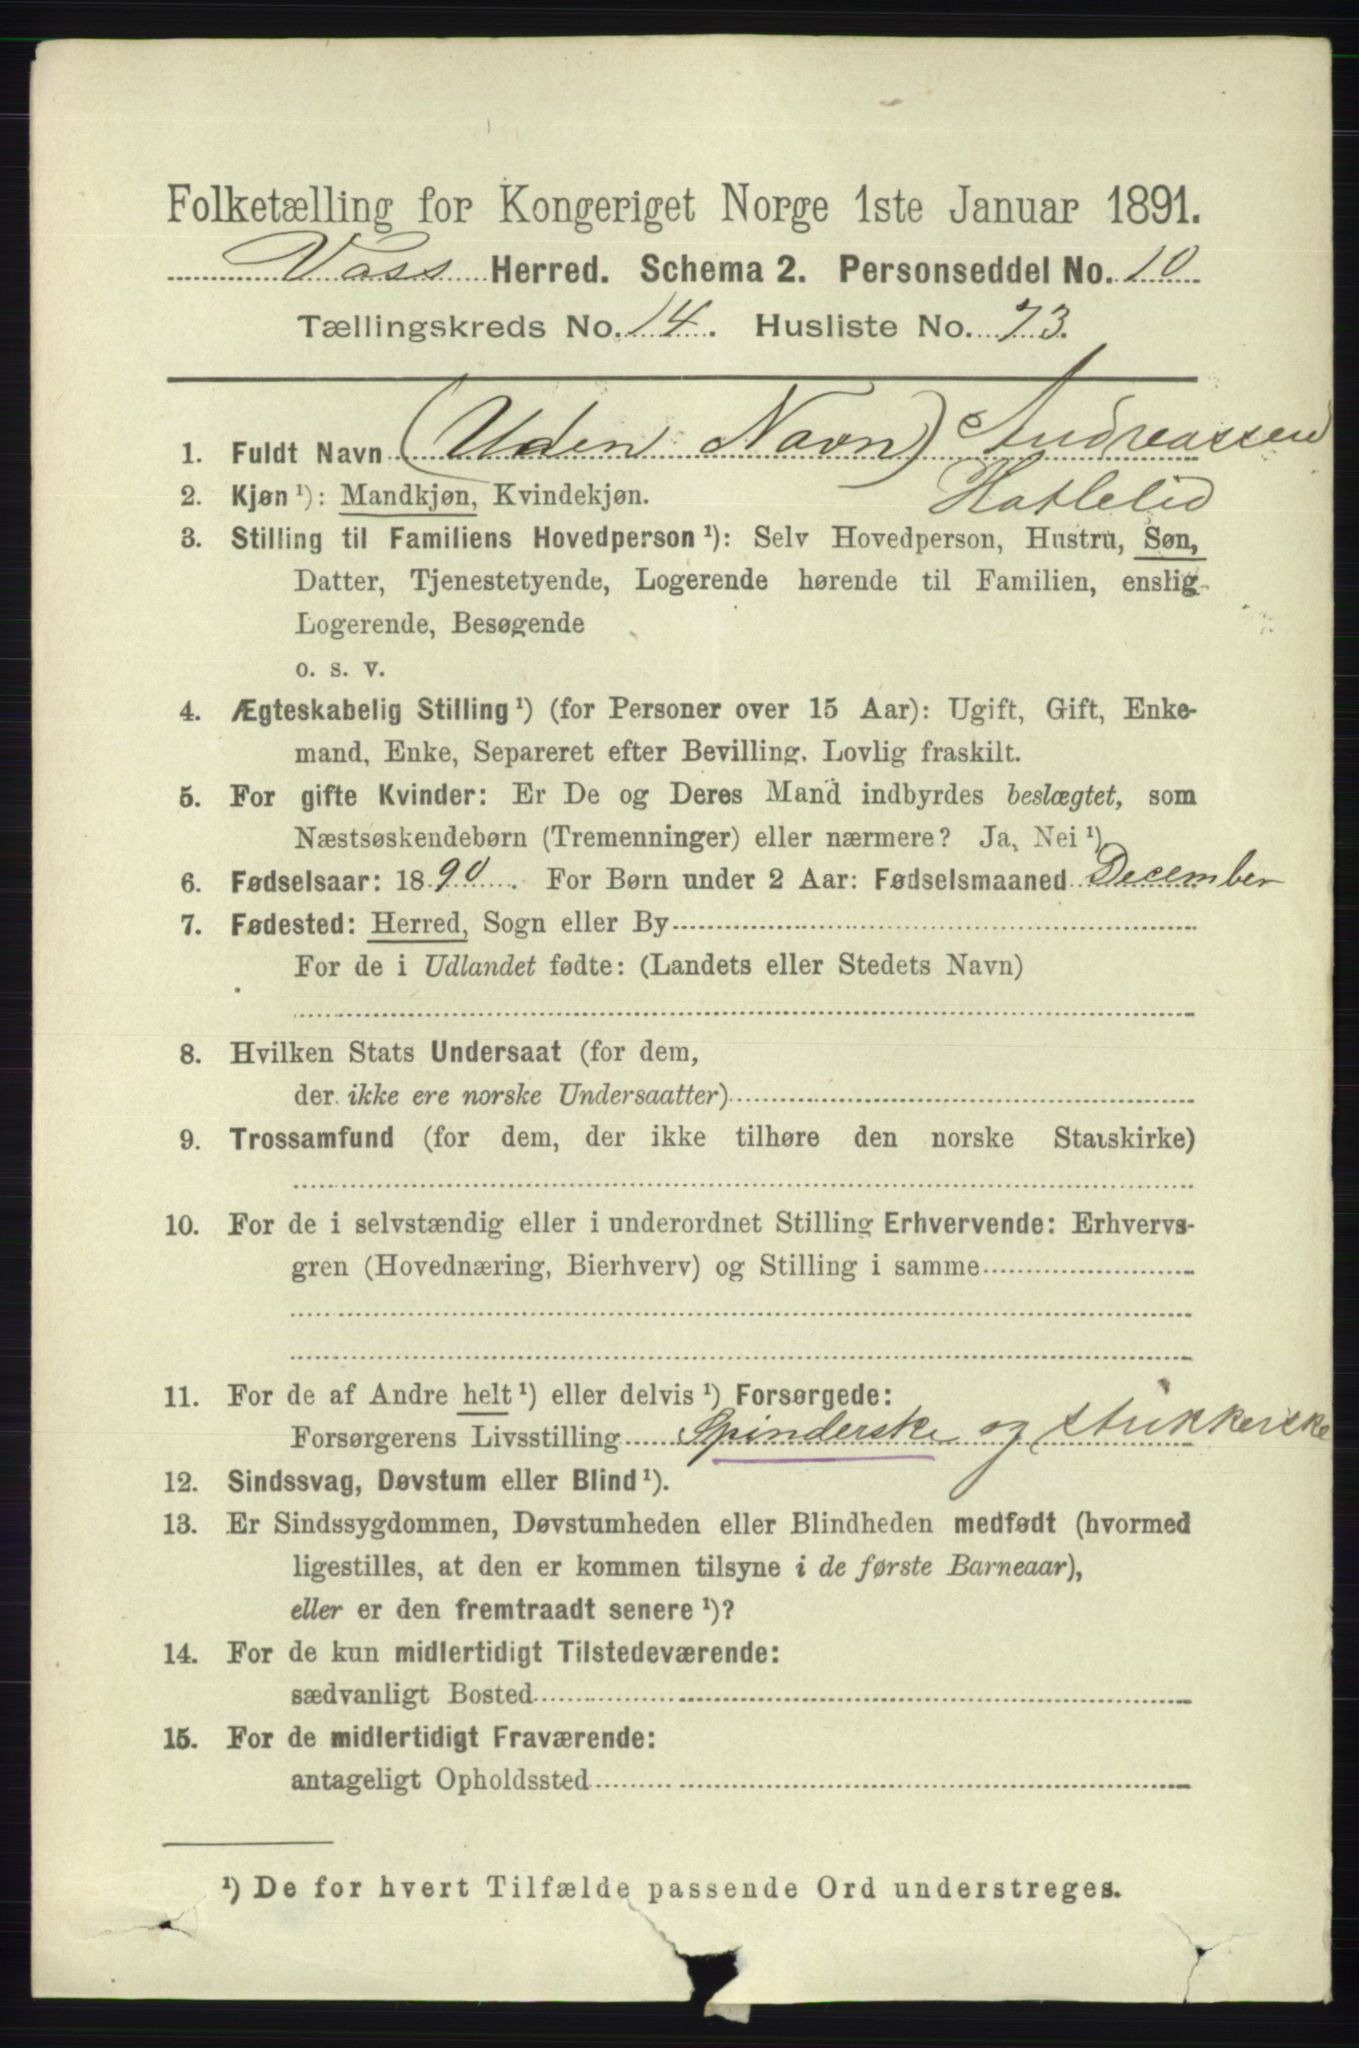 Folketælling for Kongeriget Norge 1ste Januar 1891.
Vass Herred. Schema 2. Personseddel No. 10
Tællingskreds No. 14. Husliste No. 73.
1. Fuldt Navn (Uden Navn) Andreassen
Hatlelid
2. Kjøn ¹): Mandkjøn, Kvindekjøn.
3. Stilling til Familiens Hovedperson ¹): Selv Hovedperson, Hustru, Søn,
Datter, Tjenestetyende, Logerende hørende til Familien, enslig
Logerende, Besøgende
o. s. v.
4. Ægteskabelig Stilling ¹) (for Personer over 15 Aar): Ugift, Gift, Enke-
mand, Enke, Separeret efter Bevilling. Lovlig fraskilt.
5. For gifte Kvinder: Er De og Deres Mand indbyrdes beslægtet, som
Næstsøskendebørn (Tremenninger) eller nærmere? Ja, Nei ¹)
6. Fødselsaar: 1890. For Børn under 2 Aar: Fødselsmaaned December
7. Fødested: Herred, Sogn eller By
For de i Udlandet fødte: (Landets eller Stedets Navn)
8. Hvilken Stats Undersaat (for dem,
der ikke ere norske Undersaatter)
9. Trossamfund (for dem, der ikke tilhøre den norske Statskirke)
10. For de i selvstændig eller i underordnet Stilling Erhvervende: Erhvervs-
gren (Hovednæring, Bierhverv) og Stilling i samme
11. For de af Andre helt ¹) eller delvis ¹) Forsørgede:
Forsørgerens Livsstilling Spinderske og strikkerske
12. Sindssvag, Døvstum eller Blind ¹).
13. Er Sindssygdommen, Døvstumheden eller Blindheden medfødt (hvormed
ligestilles, at den er kommen tilsyne i de første Barneaar),
eller er den fremtraadt senere ¹)?
14. For de kun midlertidigt Tilstedeværende:
sædvanligt Bosted
15. For de midlertidigt Fraværende:
antageligt Opholdssted
¹) De for hvert Tilfælde passende Ord understreges.